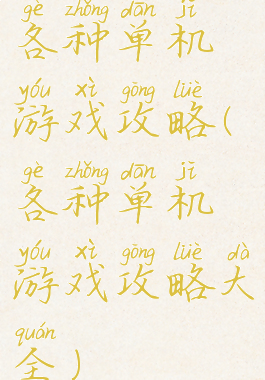 gè zhǒng dān jī
各种单机
yóu xì gōng lüè
游戏攻略(
gè zhǒng dān jī
各种单机
yóu xì gōng lüè dà
游戏攻略大
quán
全)